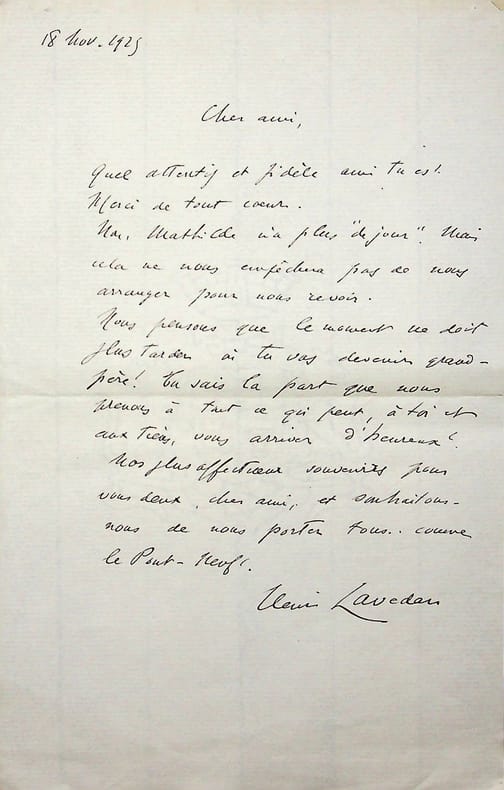 18 Nov. 1925
Cher ami,
Quel attentif et fidèle ami tu es!
Merci de tout coeur.
Non, Mathilde n'a plus "de jour". Mais
cela ne nous empêchera pas de nous
arranger pour nous revoir.
Nous pensons que le moment ne doit
plus tarder où tu vas devenir grand-
père! Tu sais la part que nous
prenons à tout ce qui peut, à toi et
aux tiens, vous arriver d'heureux!
Nos plus affectueux souvenirs pour
vous deux, cher ami, et souhaitons-
nous de nous porter tous.. comme
le Pont-Neuf!
Henri Lavedan